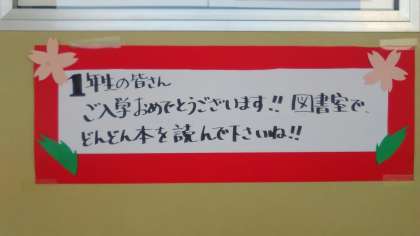 1年生の皆さん
ご入学おめでとうございます!! 図書室で、
どんどん本を読んで下さいね!!